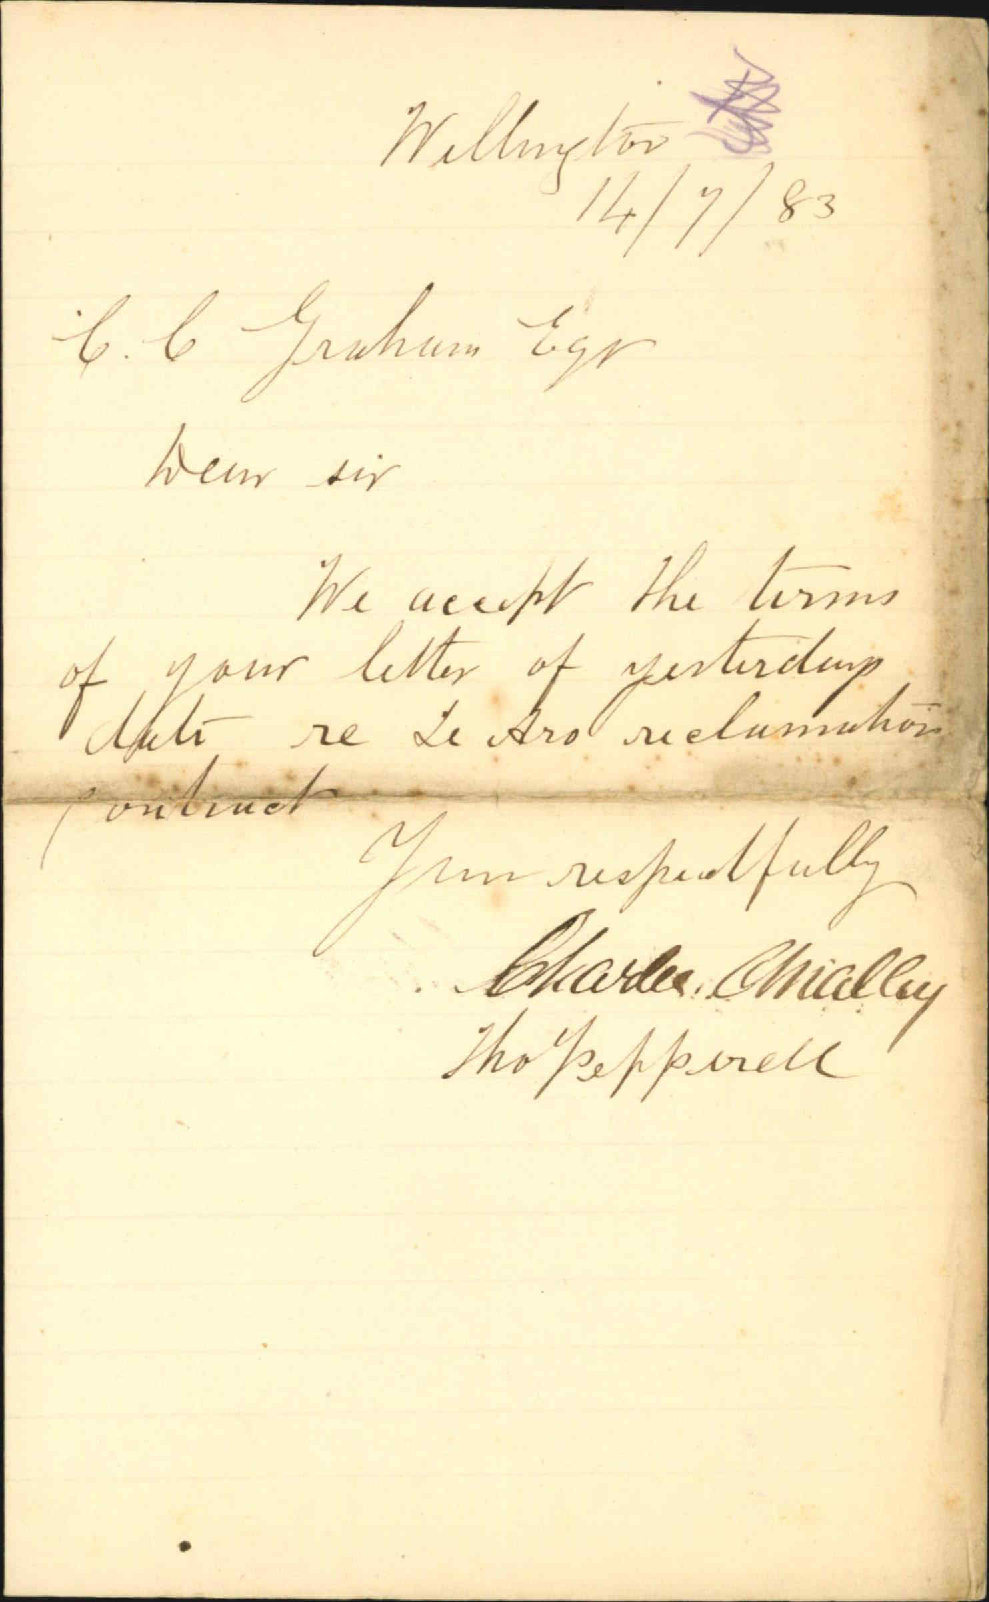 Wellington
14/7/83
C. C Graham Eqr
Dear sir
We accept the terms
of your letter of yesterdays
date re Te Aro reclamation
contract
Your respectfully
Charles. O'Malley
Tho Pepperell